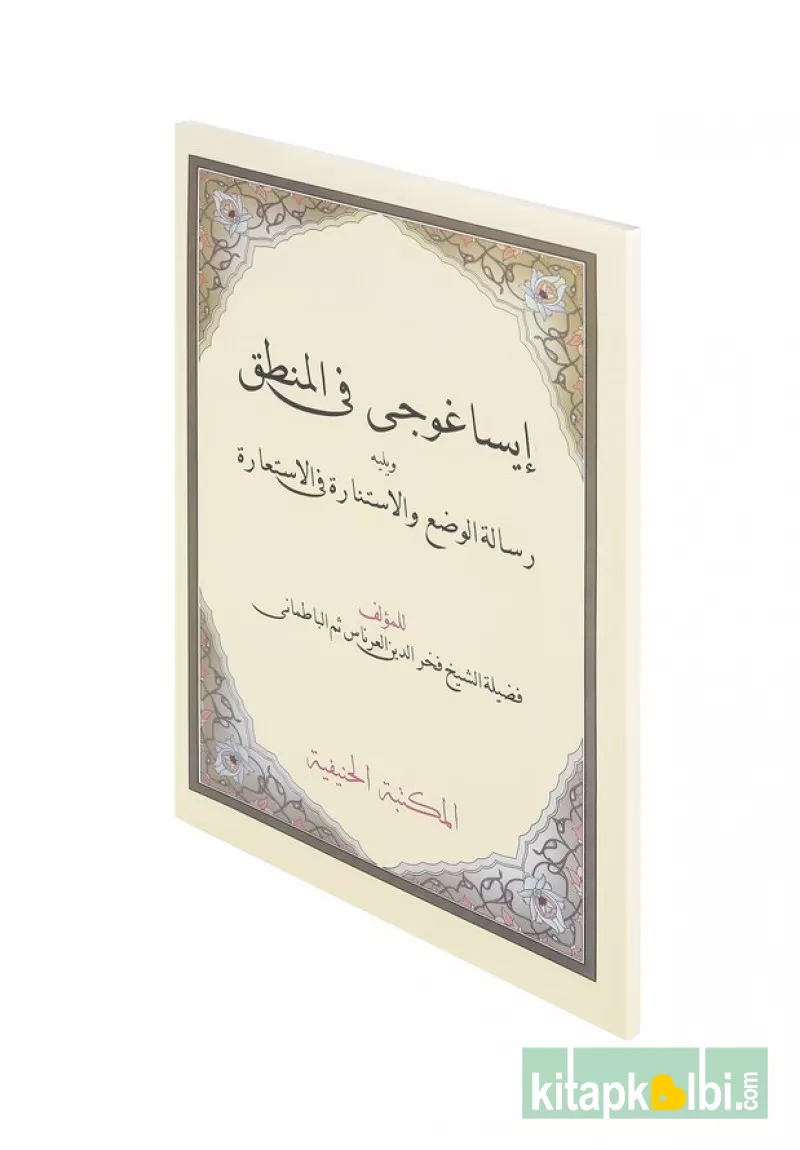 إيساغوجى فى المنطق
ويليه
رسالة الوضع والاستنارة فى الاستعارة
للمؤلف
فضيلة الشيخ فخر الدين العرناس ثم الباطمانى
المكتبة الحنيفية
kitapkalbi.com